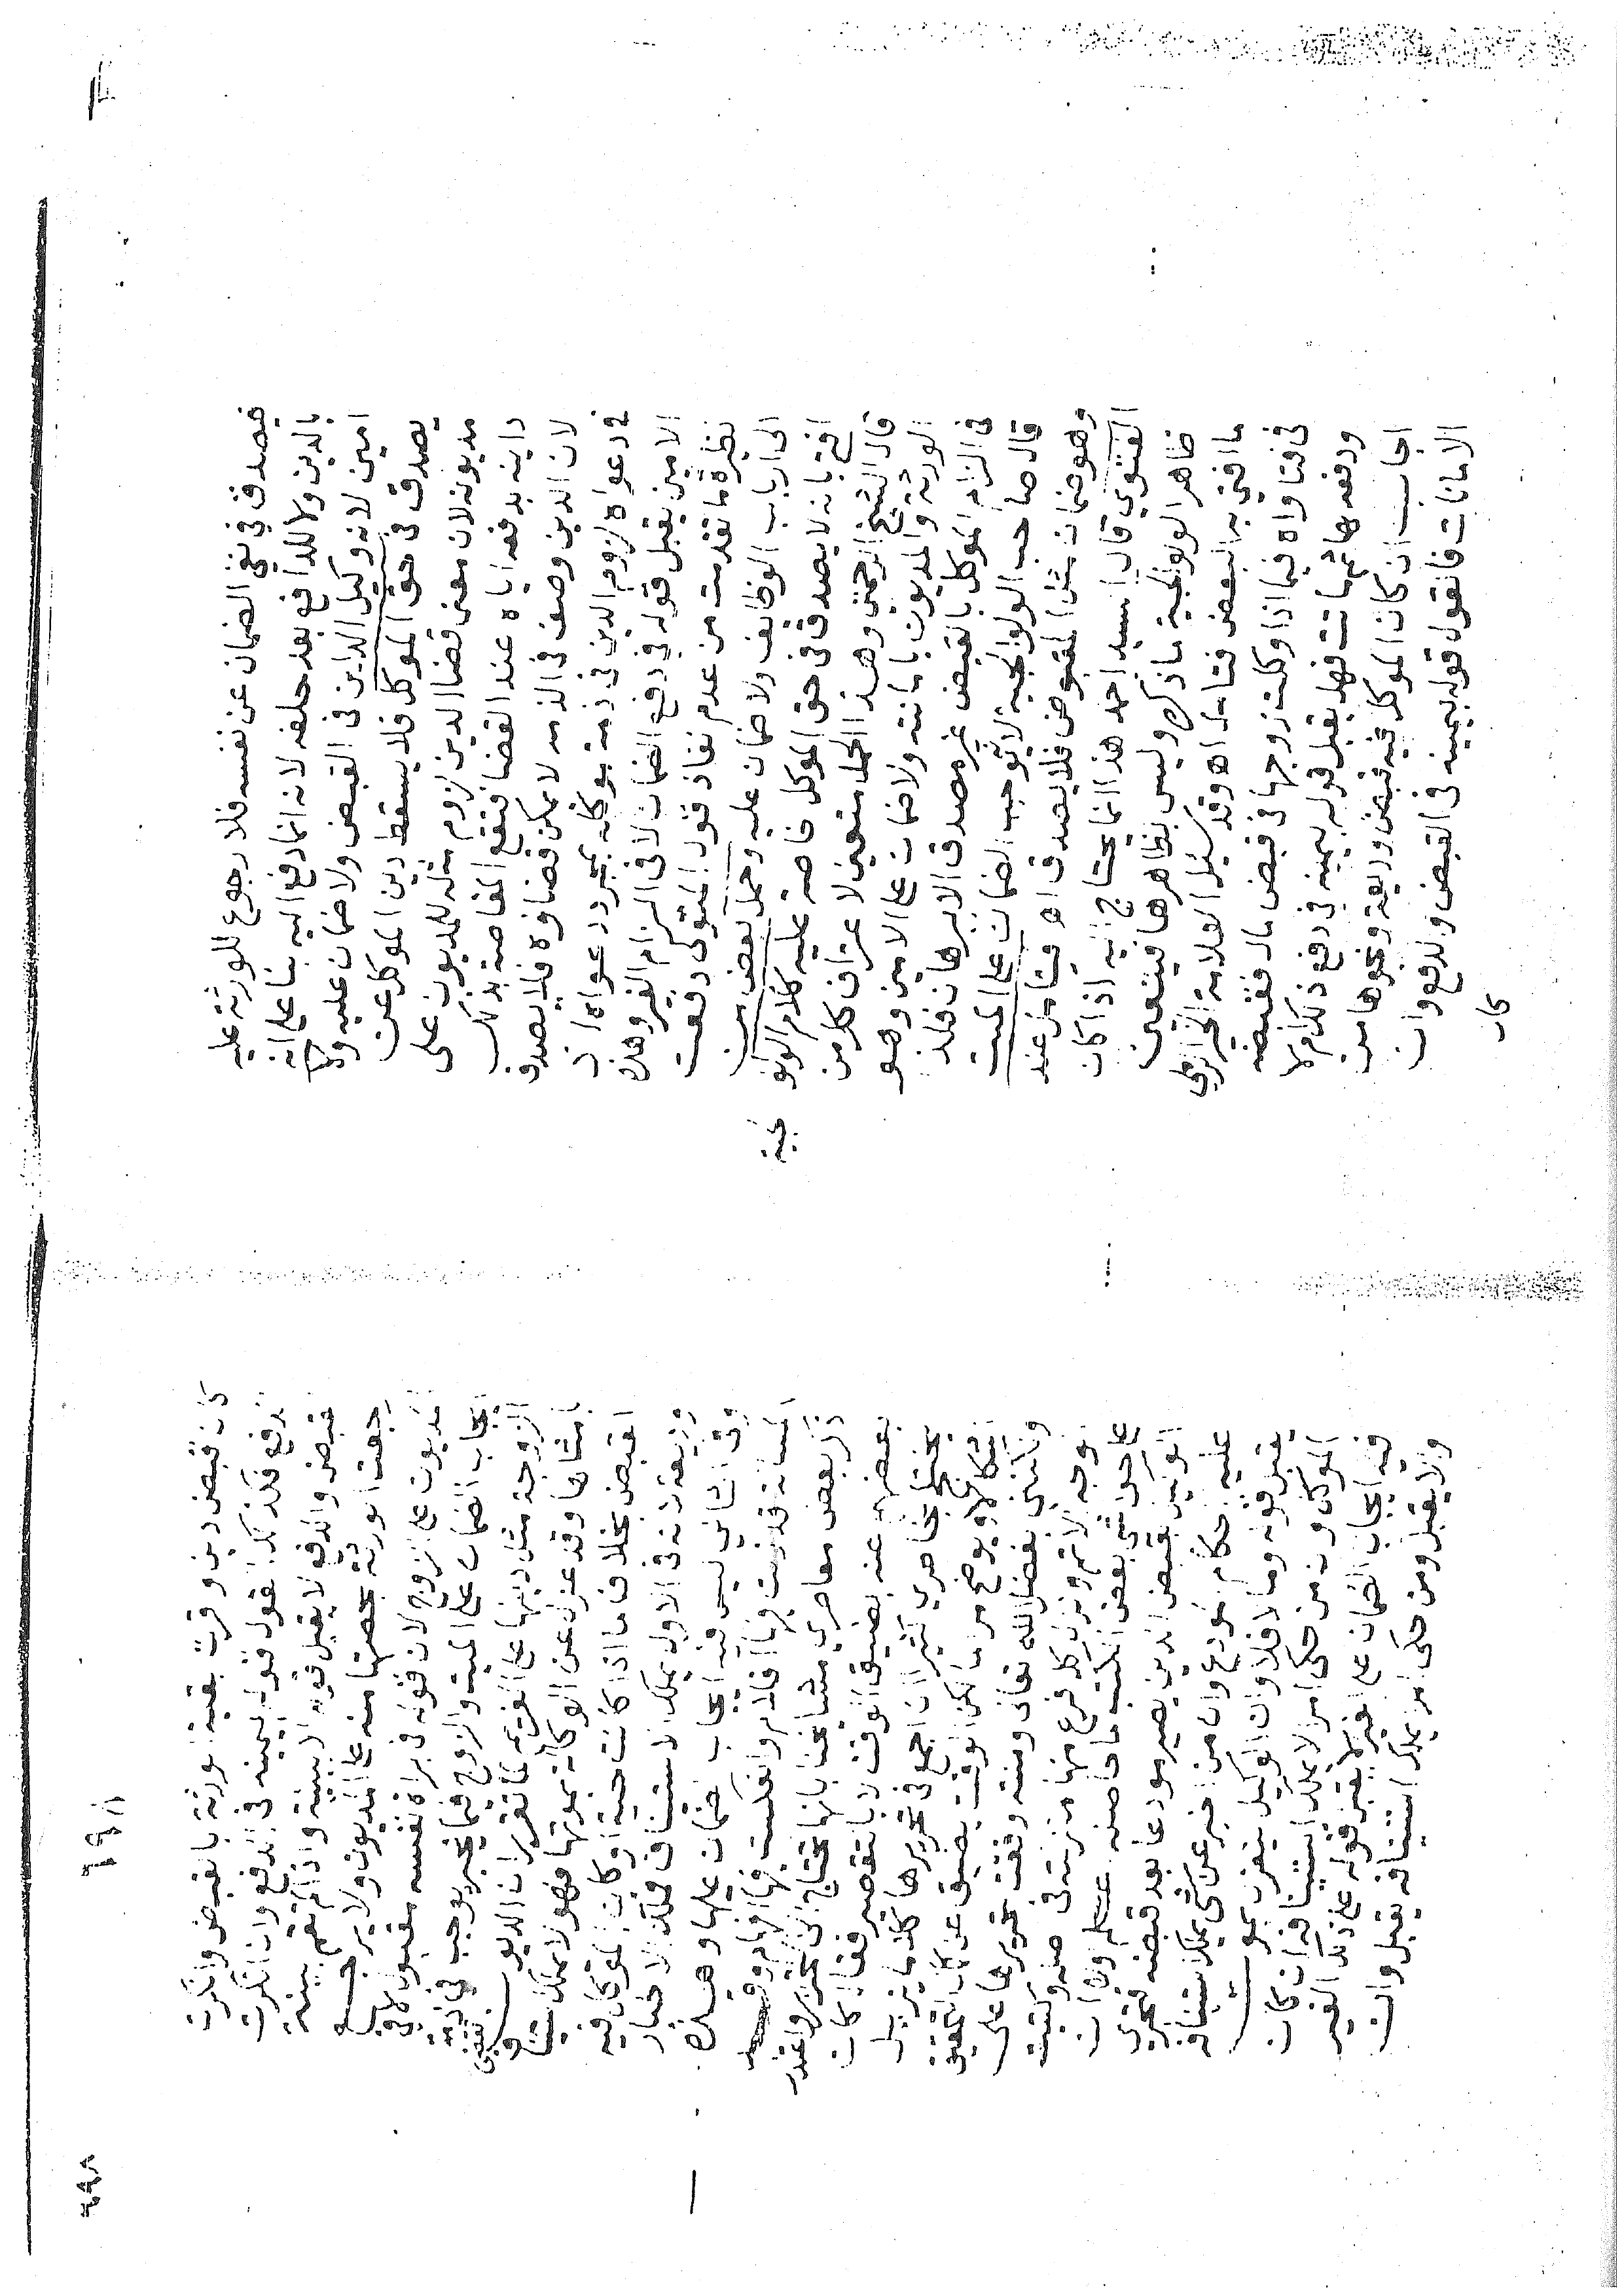 فيصدق في نفي الضمان عن نفسه فلا رجوع للورثة عليه
بالدين ولا للدافع بعد حلفه لانه انما دفع اليه بنا على انه
امين لانه وكيل الداين في القبض ولا ضمان عليه ولا
يصدق في حق الموكل فلا يسقط دين الموكل عن
مديونه لان معنى قضا الدين لزوم مثله للمديون على
داينه بدفعه اياه عند القضا فتقع المقاصة بذلك
لان الدين وصف في الذمه لا يمكن قضاؤه فلا يصدق
في دعواه لزوم الدين في ذمة موكله بمجرد دعواه لان
الامين يقبل قوله في دفع الضمان لا في الزام الغير وهذه
نظيرة ما تقدمت من عدم نفاذ قول المتولي دفعت
الى ارباب الوظائف ولا ضمان عليه وحمل بعض من
افتى بانه لا يصدق في حق الموكل خاصة عليه كلام الولوالجية
قال الشيخ الرحمتي وهذا الحمل متعين لاعتراف كل من
الورثة والمديون بامانته ولا ضمان على الامين وهو
في الزام الموكل بالقبض غير مصدق الا ببرهان فلذ
قال صاحب الولوالجية لا يوجب الضمان على الميت
وهو ضمان مثل المقبوض فلا يصدق اه فيتامل عند
الفتوي قال السيد احمد هذا انما يحتاج اليه اذا كان
ظاهر الولوالجية ما ذكره وليس بظاهرها فيتعين
ما افتى به البعض فتامل اه وقد سئل العلامة الخير الرملي
في فتاواه فيما اذا وكلت زوجها في قبض مال فقبضه
ودفعه لها ثم ماتت فهل يقبل قوله بيمينه في دفع ذلك ام لا
اجاب ان كان الموكل فيه قبض وديعة ونحوها من
الامانات فالقول قوله بيمينه في القبض والدفع وان
كان
١٩٨
كان قبض دين وقرت بقية الورثة بالقبض وانكرت
الدفع فكذلك القول قوله بيمينه في الدفع وان انكرت
قبض والدفع لا يقبل قوله الا ببينة واذا لم تقم بينة
رجعت الورثة بحصتها منه على المديون ولا يرجع
المديون على الزوج لان قوله في براة نفسه مقبول لا في
ايجاب الضمان على الميت والزوج فيما يخبر يوجب في ذمة
الزوجة مثل دينها على الغريم لما تقرر ان الديون تقضى
بامثالها وقد عزل عن الوكالة بموتها فهو لا يملك استئناف
القبض بخلاف ما اذا كانت حية او كان الموكل فيه
وديعة لانه في الاول يملك الاستئناف فملك الاخبار
وفي الثاني ليس فيه ايجاب ضمان عليها وهذه
المسالة قد زلت فيها اقلام وانعكست فيها افهام
ذكر بعض معاصري مشائخنا بانها تحتاج الى التحرير واعتذر
بعضهم عنه بضيق الوقت لا بالتقصير فقال كان
يختلج بخاطري كثيرا ان اجمع في تحريرها كلاما يزيل
اشكالا ويوضح مراما لكن الوقت يضيق عن كمال التحقيق
ولكنني بفضل الله تعالى ومنته وقفت على تحريرها على
الوجه الاتم ونزل كل فرع منها منزلته في وكتبت
على حواشي بعض الكتب ما حاصله
الوكيل بقبض الدين يصير مودعا بعد قبضه فتجري
عليه احكام المودع وان من اخبر عن شي يملك استئنافه
يقبل قوله وما لا فلا وان الوكيل ينعزل بموت
الموكل وانه من حكى امرا لا يملك استئنافه ان كان
فيه ايجاب الضمان على الغير لا يقبل قوله على ذلك الغير
والا يقبل ومن حكى امرا يملك استئنافه يقبل وان